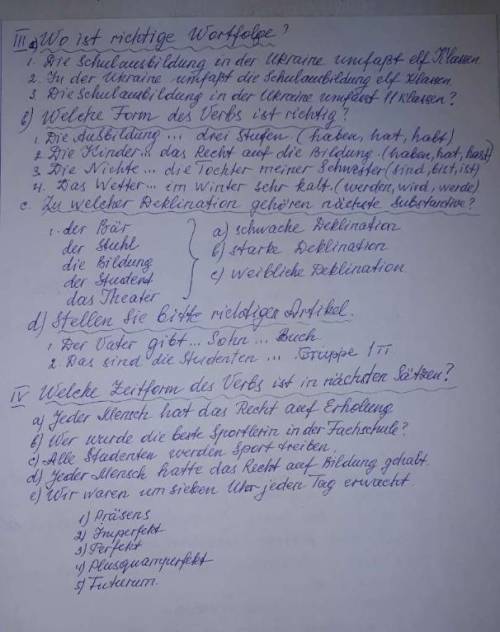 III a) Wo ist richtige Wortfolge?
1. Die Schulausbildung in der Ukraine umfaßt elf Klassen.
2. In der Ukraine umfaßt die Schulausbildung elf Klassen.
3. Die Schulausbildung in der Ukraine umfasst 11 Klassen?
b) Welche Form des Verbs ist richtig?
1. Die Ausbildung ... drei Stufen (haben, hat, habt)
2. Die Kinder ... das Recht auf die Bildung. (haben, hat, hast)
3. Die Nichte ... die Tochter meiner Schwester (sind, bist, ist)
4. Das Wetter ... im Winter sehr kalt. (werden, wird, werde)
c. Zu welcher Deklination gehören nächste Substantive?
1. der Bär a) schwache Deklination
der Stuhl b) starke Deklination
die Bildung c) weibliche Deklination
der Student
das Theater
d) Stellen Sie bitte richtigen Artikel.
1. Der Vater gibt ... Sohn ... Buch.
2. Das sind die Studenten ... Gruppe 1 П
IV Welche Zeitform des Verbs ist in nächsten Sätzen?
a) Jeder Mensch hat das Recht auf Erholung
b) Wer wurde die beste Sportlerin in der Fachschule?
c) Alle Studenten werden Sport treiben.
d) Jeder Mensch hatte das Recht auf Bildung gehabt.
e) Wir waren um sieben Uhr jeden Tag erwacht.
1) Präsens
2) Imperfekt
3) Perfekt
4) Plusquamperfekt
5) Futurum.